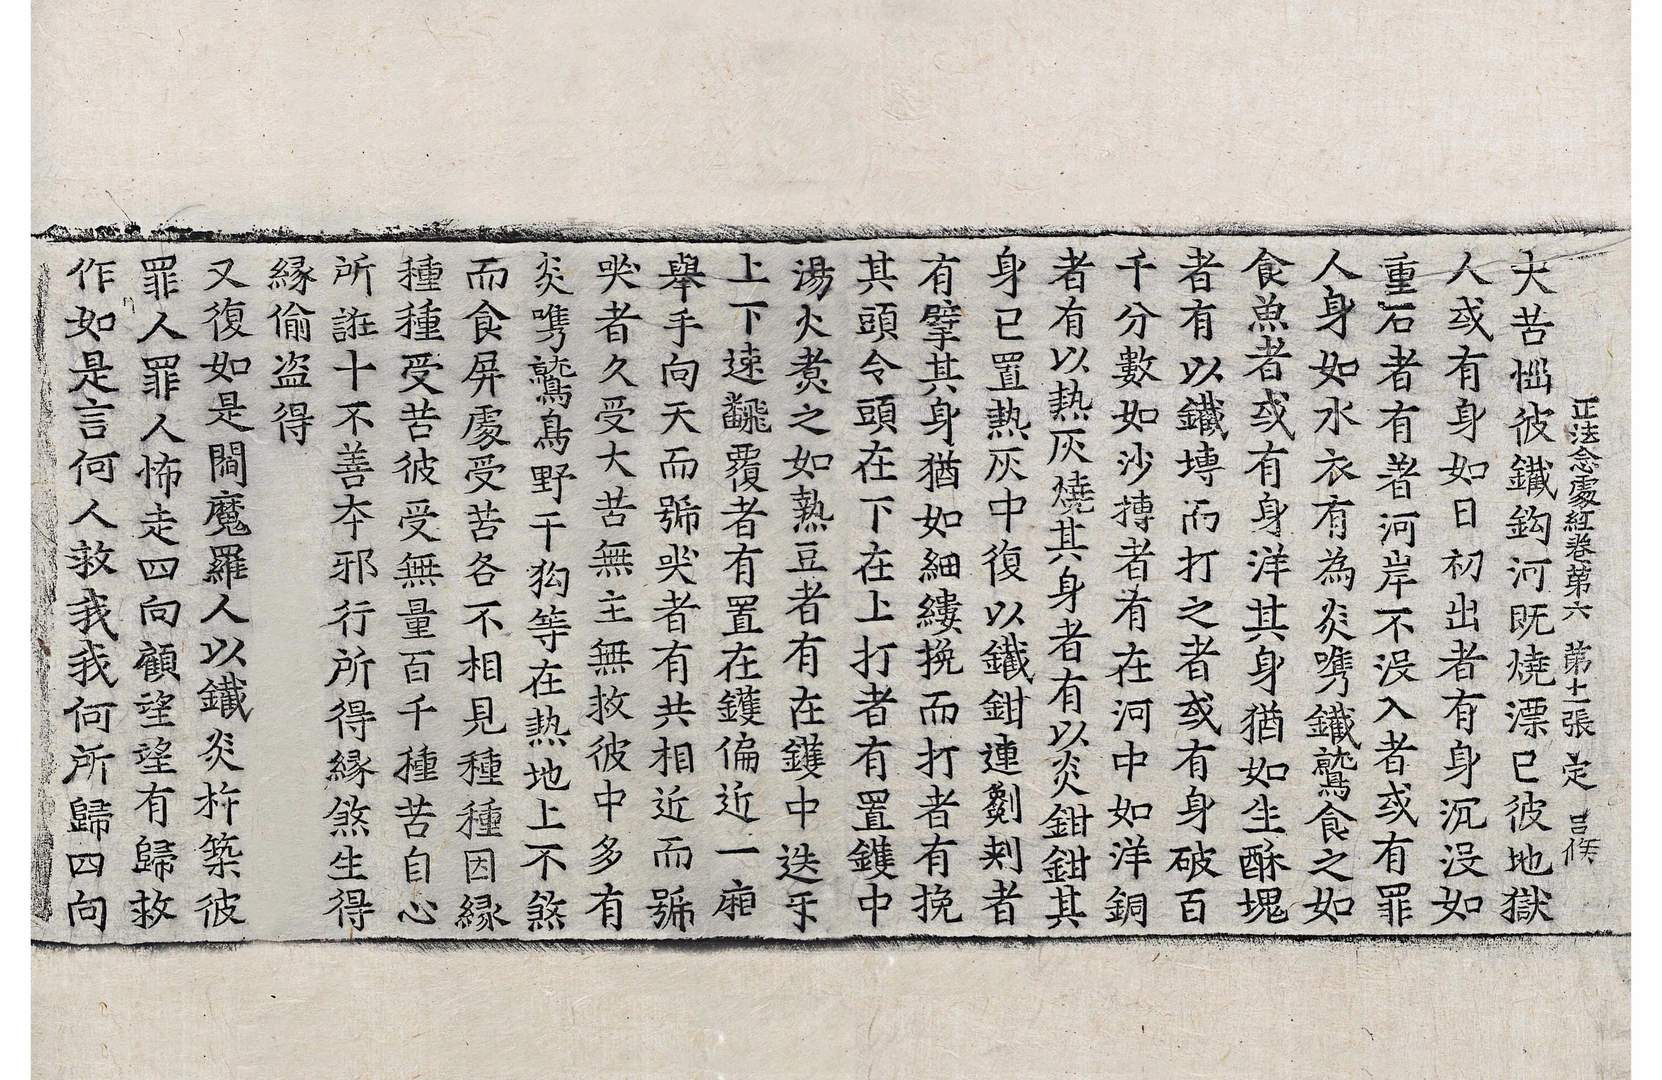 正法念處經卷第六 第十一張 定
大苦惱彼鐵鈎河旣燒漂已彼地獄
人或有身如日初出者有身沉没如
重石者有著河岸不没入者或有罪
人身如水衣有為炎嘴鐵鷲食之如
食魚者或有身洋其身猶如生酥塊
者有以鐵塼而打之者或有身破百
千分數如沙摶者有在河中如洋銅
者有以熱灰燒其身者有以炎鉗鉗其
身已置熱灰中復以鐵鉗連劖刺者
有擘其身猶如細縷挽而打者有挽
其頭令頭在下在上打者有置鑊中
湯火煮之如熱豆者有在鑊中迭㸦
上下速飜覆者有置在鑊偏近一廂
舉手向天而號哭者有共相近而號
哭者久受大苦無主無救彼中多有
炎嘴鷲鳥野干狗等在熱地上不煞
而食屏處受苦各不相見種種因緣
種種受苦彼受無量百千種苦自心
所誑十不善夲邪行所得緣煞生得
緣偷盗得
又復如是閻魔羅人以鐵炎杵築彼
罪人罪人怖走四向顧望望有歸救
作如是言何人救我我何所歸四向